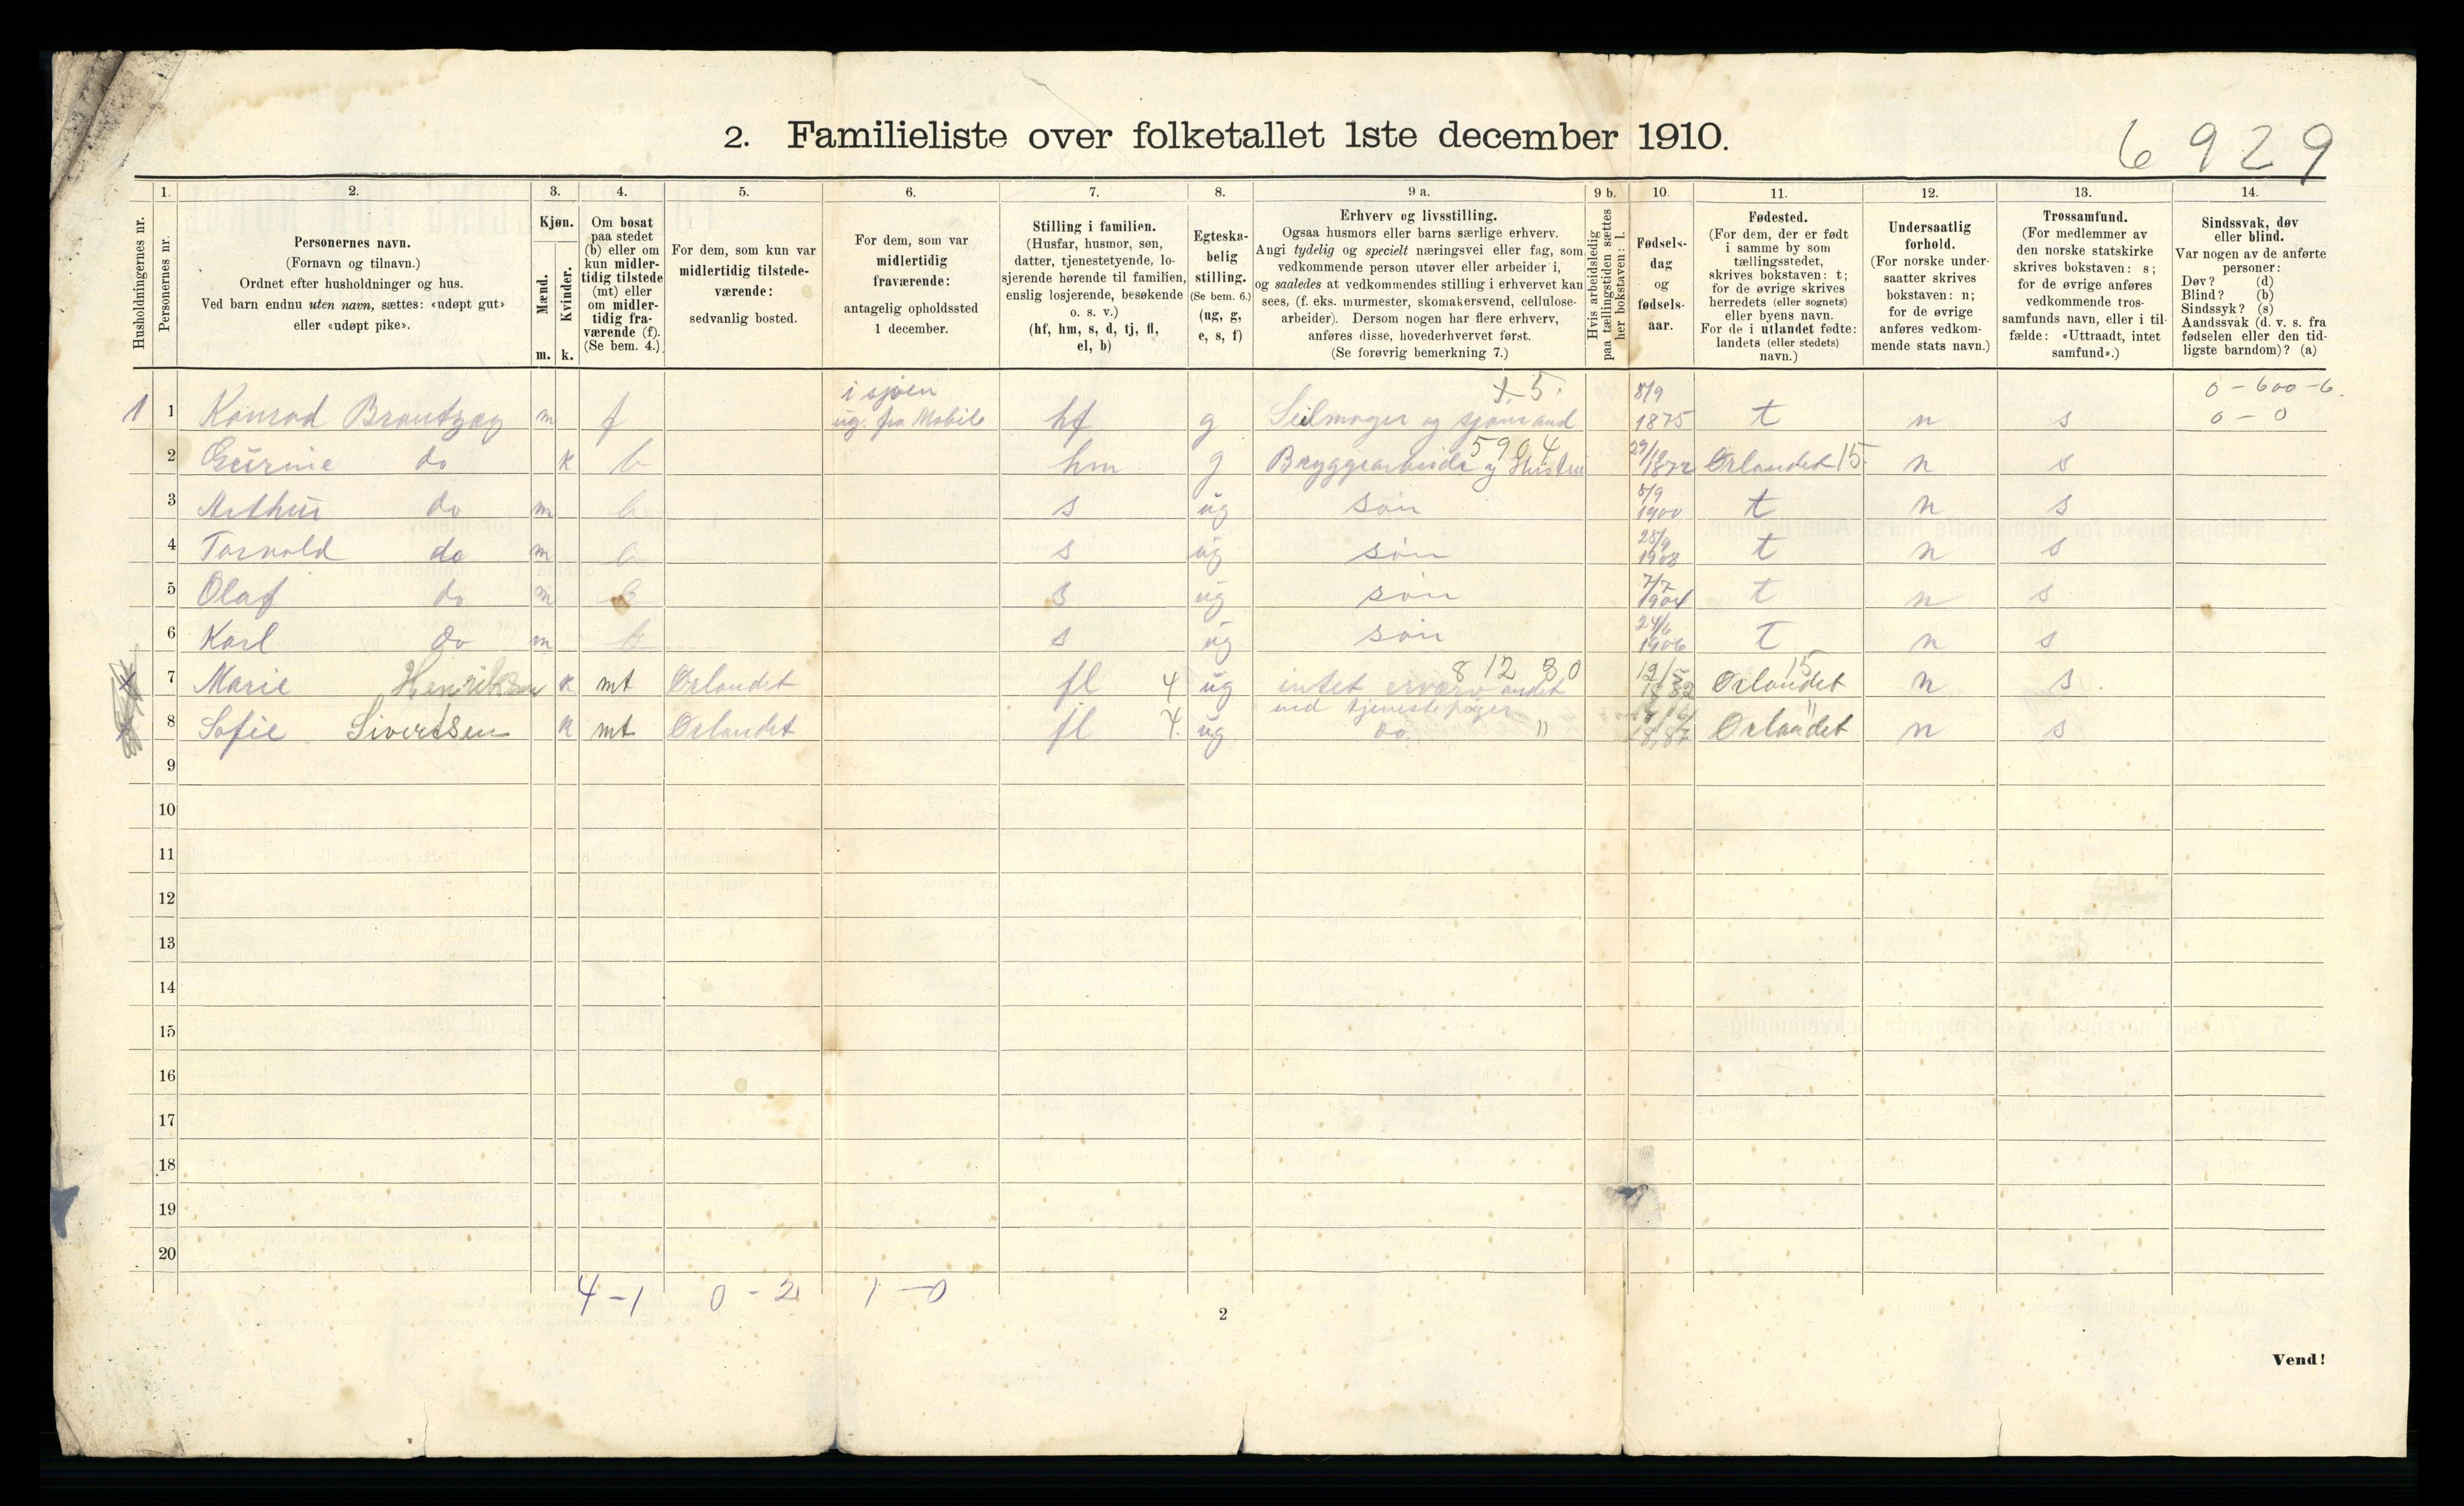 2. Familieliste over folketallet 1ste december 1910.
6 9 2 9
Husholdningernes nr.
1.
Personernes nr.
2.
Personernes navn.
(Fornavn og tilnavn.)
Ordnet efter husholdninger og hus.
Ved barn endnu uten navn, sættes: «udøpt gut»
eller «udøpt pike».
3.
Kjøn.
Mænd.
Kvinder.
m. k.
4.
Om bosat
paa stedet
(b) eller om
kun midler-
tidig tilstede
(mt) eller
om midler-
tidig fra-
værende (f).
(Se bem. 4.)
5.
For dem, som kun var
midlertidig tilstede-
værende:
sedvanlig bosted.
6.
For dem, som var
midlertidig
fraværende:
antagelig opholdssted
1 december.
7.
Stilling i familien.
(Husfar, husmor, søn,
datter, tjenestetyende, lo-
sjerende hørende til familien,
enslig losjerende, besøkende
o. s. v.)
(hf, hm, s, d, tj, fl,
el, b)
8.
Egteska-
belig
stilling.
(Se bem. 6.)
(ug, g,
e, s, f)
9 a.
Erhverv og livsstilling.
Ogsaa husmors eller barns særlige erhverv.
Angi tydelig og specielt næringsvei eller fag, som
vedkommende person utøver eller arbeider i,
og saaledes at vedkommendes stilling i erhvervet kan
sees, (f. eks. murmester, skomakersvend, cellulose-
arbeider). Dersom nogen har flere erhverv,
anføres disse, hovederhvervet først.
(Se forøvrig bemerkning 7.)
9 b.
Hvis arbeidsledig
paa tællingstiden sættes
her bokstaven: l.
10.
Fødsels-
dag
og
fødsels-
aar.
11.
Fødested.
(For dem, der er født
i samme by som
tællingsstedet,
skrives bokstaven: t;
for de øvrige skrives
herredets (eller sognets)
eller byens navn.
For de i utlandet fødte:
landets (eller stedets)
navn.)
12.
Undersaatlig
forhold.
(For norske under-
saatter skrives
bokstaven: n;
for de øvrige
anføres vedkom-
mende stats navn.)
13.
Trossamfund.
(For medlemmer av
den norske statskirke
skrives bokstaven: s;
for de øvrige anføres
vedkommende tros-
samfunds navn, eller i til-
fælde: «Uttraadt, intet
samfund».)
14.
Sindssvak, døv
eller blind.
Var nogen av de anførte
personer:
Døv? (d)
Blind? (b)
Sindssyk? (s)
Aandssvak (d. v. s. fra
fødselen eller den tid-
ligste barndom)? (a)
i sjøen 5. 8/9 0 - 600 - 6.
1 1 Konrad Brautzæg m f ug. fra Mobile hf g Seilmager og sjømand 1875 t n s 0 - 0
5 9 0 4 29/10
2 Gurine do k b hm g Bryggearbeide og Hustru 1872 Ørlandet 15 n s
8/9
3 Arthur do m b s ug søn 1900 t n s
28/9
4 Torvald do m b s ug søn 1908 t n s
7/7
5 Olaf do m b s ug søn 1904 t n s
24/6
6 Karl do m b s ug søn 1906 t n s
8 12 30 12/5 15
7 Marie Henriksen k mt Ørlandet fl 4 ug intet erværv andet 1882 Ørlandet n s
end tjenestepiger "
8 Sofie Sivertsen k mt Ørlandet fl 4. ug do " 1887 Ørlandet n s
9
10
11
12
13
14
15
16
17
18
19
20
4 - 1 0 - 2 1 - 0
2
Vend!